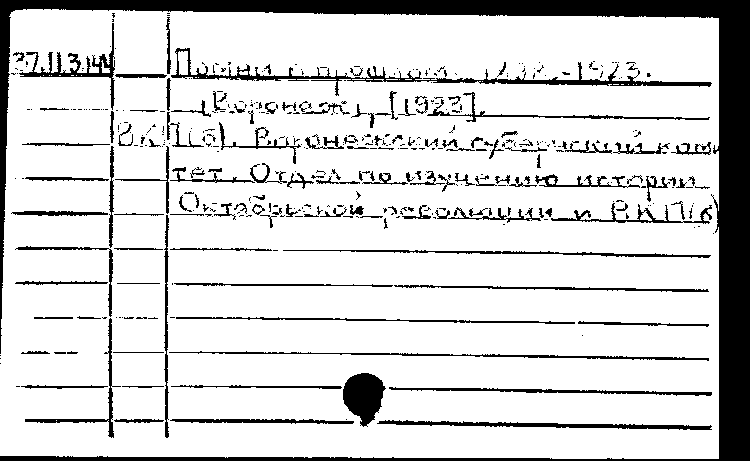 37.11.3.14N Помни о прошлом. 1898-1923.
(Воронеж), [1923].
ВКП(б). Воронежский губернский коми
тет. Отдел по изучению истории
Октябрьской революции и ВКП(б)